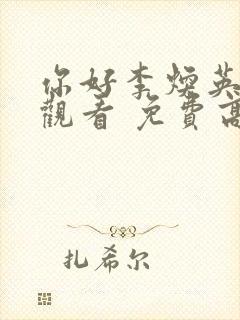 你好李焕英
觀看 免費高
扎希尔